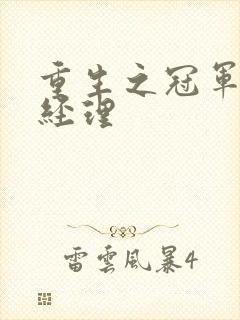 重生之冠軍
經理
雷雲風暴4